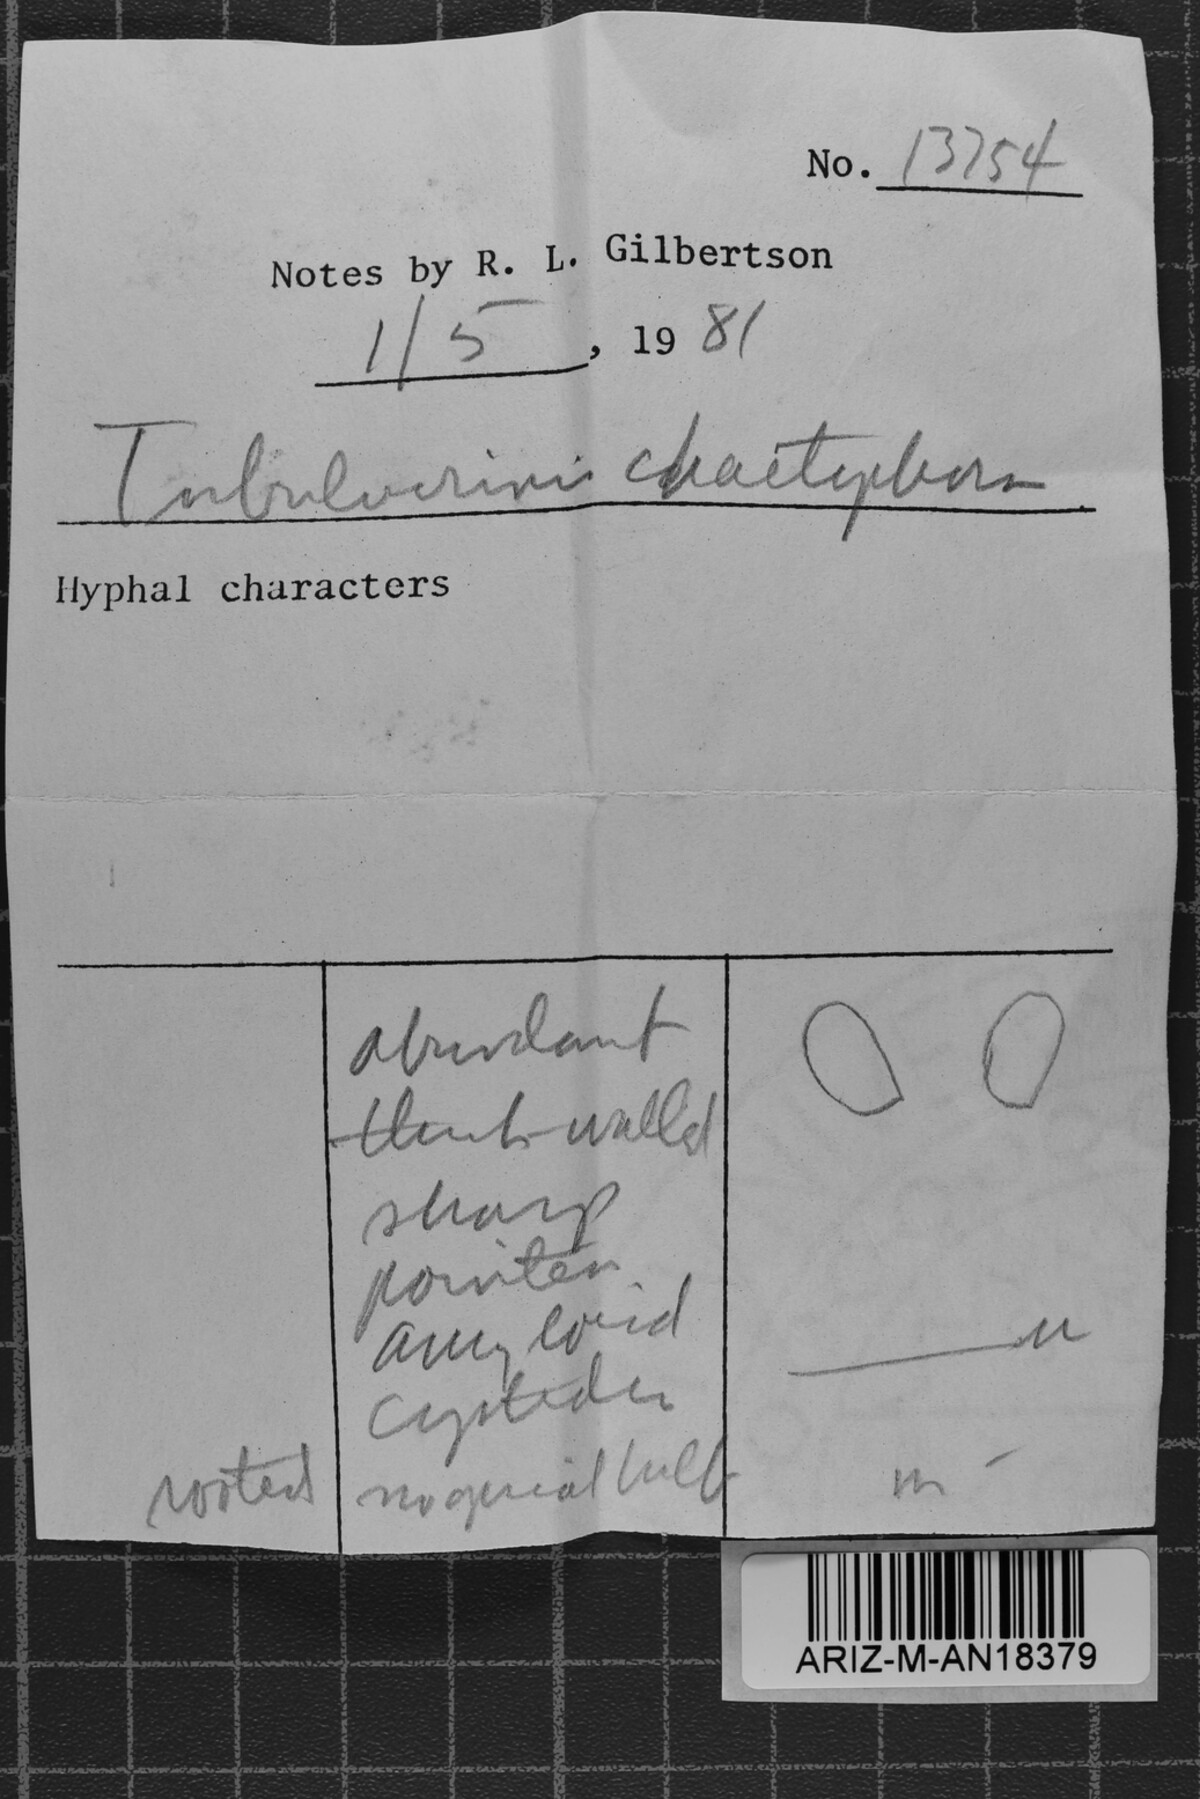 No. 13754
Notes by R. L. Gilbertson
1/5, 19 81
Tubulicrinis chaetophora
Hyphal characters
abundant
thick-walled
sharp
pointed
amyloid
cystidia
rooted
no special bulb
µ
m -
ARIZ-M-AN18379